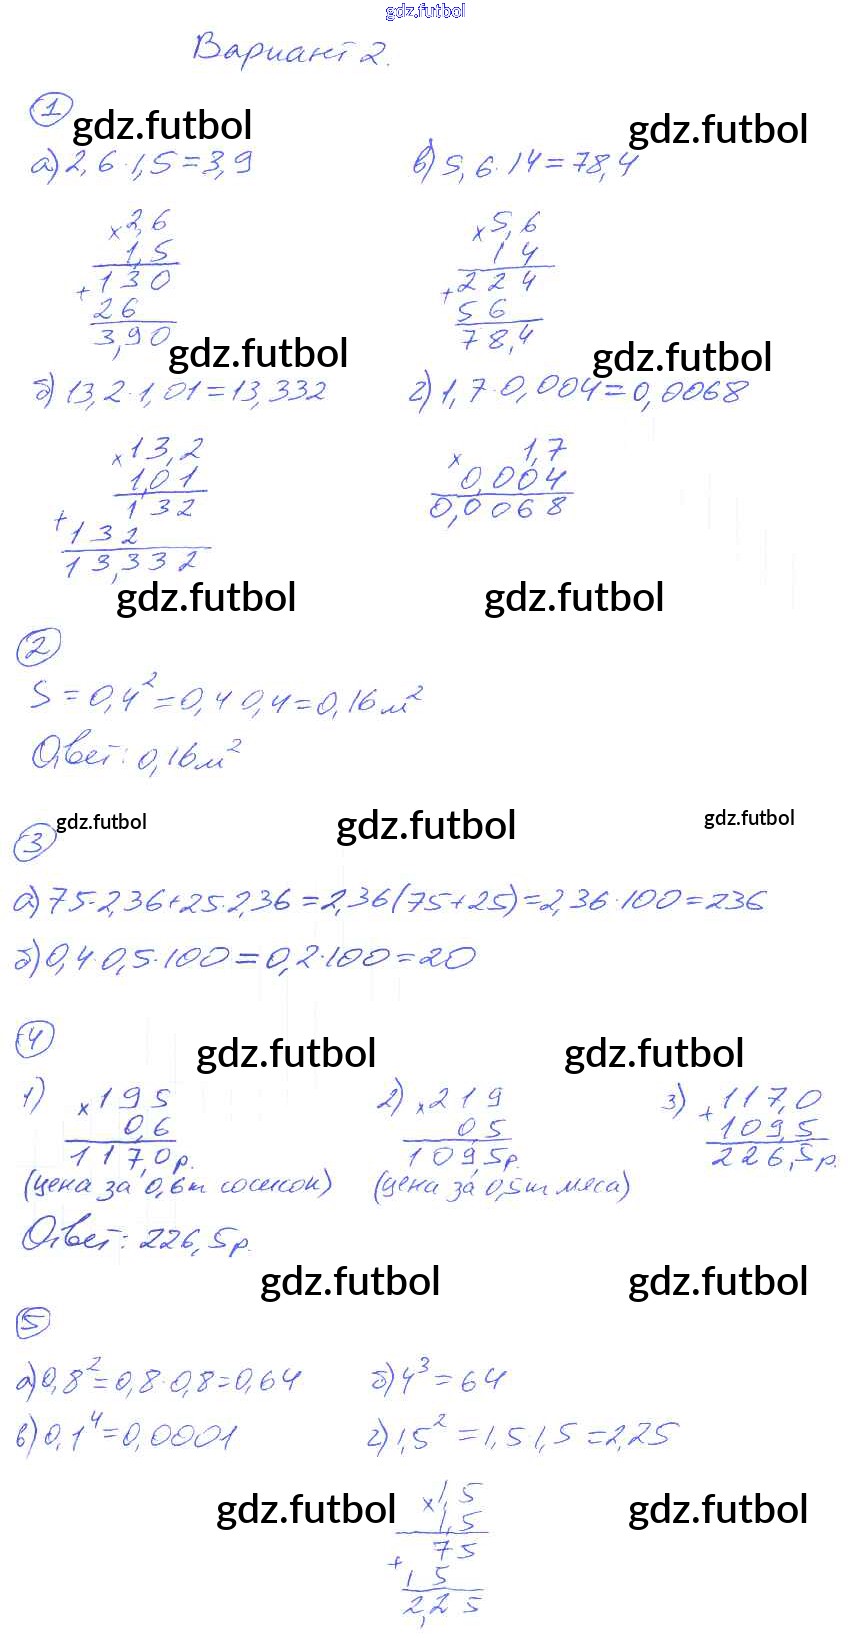 gdz.futbol
Вариант 2.
1
gdz.futbol gdz.futbol
а) 2,6·1,5=3,9 в) 5,6·14=78,4
×2,6 ×5,6
1,5 14
+130 +224
26 56
3,90 78,4
gdz.futbol gdz.futbol
б) 13,2·1,01=13,332 г) 1,7·0,004=0,0068
×13,2 ×1,7
1,01 0,004
+132 0,0068
132
13,332
gdz.futbol gdz.futbol
2
S=0,4²=0,4 0,4=0,16м²
Ответ: 0,16м²
3 gdz.futbol gdz.futbol gdz.futbol
а) 75·2,36+25·2,36=2,36(75+25)=2,36·100=236
б) 0,4·0,5·100=0,2·100=20
4
gdz.futbol gdz.futbol
1) ×195 2) ×219 3) +117,0
0,6 0,5 109,5
117,0р. 109,5р. 226,5р.
(цена за 0,6кг сосисок) (цена за 0,5кг мяса)
Ответ: 226,5р.
gdz.futbol gdz.futbol
5
а) 0,8²=0,8·0,8=0,64 б) 4³=64
в) 0,1⁴=0,0001 г) 1,5²=1,5 1,5=2,25
gdz.futbol ×1,5 gdz.futbol
1,5
+75
15
2,25